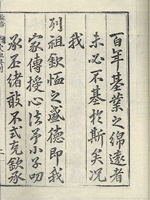 百年基業之綿遠者
未必不基於斯矣况
我
列祖欽恤之盛德即我
家傳授心法予小子叨
承丕緒敢不式克欽承